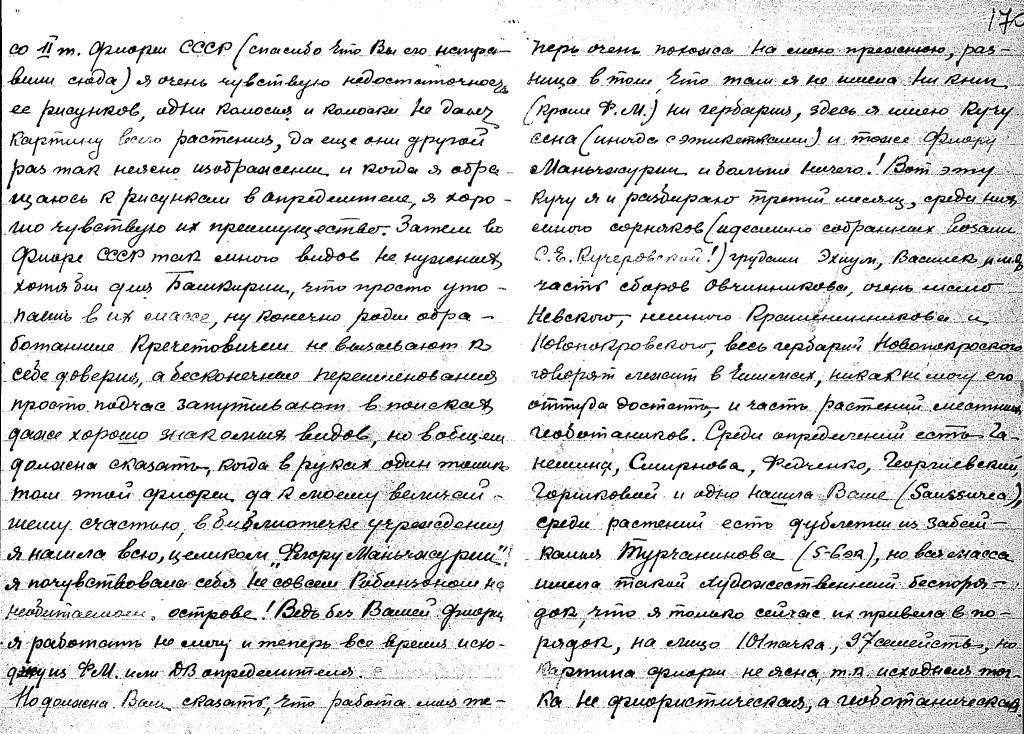 со II т. Флоры СССР (спасибо что Вы его напра-
вили сюда) я очень чувствую недостаточность
ее рисунков, одни колосья и колоски не дают
картину всего растения, да еще они другой
раз так неясно изображены и когда я обра-
щаюсь к рисункам в определителе, я хоро-
шо чувствую их преимущество. Затем во
Флоре СССР так много видов не нужных
хотя бы для Башкирии, что просто уто-
паешь в их массе, ну конечно роды обра-
ботанные Кречетовичем не вызывают к
себе доверия, а бесконечные переименования
просто подчас запутывают в поисках
даже хорошо знакомых видов, но в общем
должна сказать, когда в руках один только
том этой флоры, да к моему величай-
шему счастью, в библиотечке учреждения
я нашла всю, целиком „Флору Маньчжурии"!
я почувствовала себя не совсем Робинзоном на
необитаемом острове! Ведь без Вашей флоры
я работать не могу и теперь все время исхо-
жу из Ф.М. или ДВ определителя.
Но должна Вам сказать, что работа моя те-
170
перь очень похожа на мою прежнюю, раз-
ница в том, что там я не имела ни книг
(кроме Ф.М.) ни гербария, здесь я имею кучу
сена (иногда с этикетками) и тоже Флору
Маньчжурии и больше ничего! Вот эту
кучу я и разбираю третий месяц, среди них
много сорняков (идеально собранных Вашей
С.Е. Кучеровской!) грудами Эхиум, Василек,
часть сборов Овчинникова, очень мало
Невского, немного Крашенинникова и
Новопокровского, весь гербарий Новопокровского
говорят лежит в никак не могу его
оттуда достать и часть растений местных
геоботаников. Среди определений есть Га-
нешина, Смирнова, Федченко, Георгиевский,
Горшковой и одно нашла Ваше (Saussurea),
среди растений есть дублеты из Забай-
калья Турчанинова (5-6 экз), но вся масса
имела такой художественный беспоря-
док, что я только сейчас их привела в по-
рядок, на лицо 101 пачка, 97 семейств, но
картина флоры не ясна, т.к. исходная точ-
ка не флористическая, а геоботаническая.